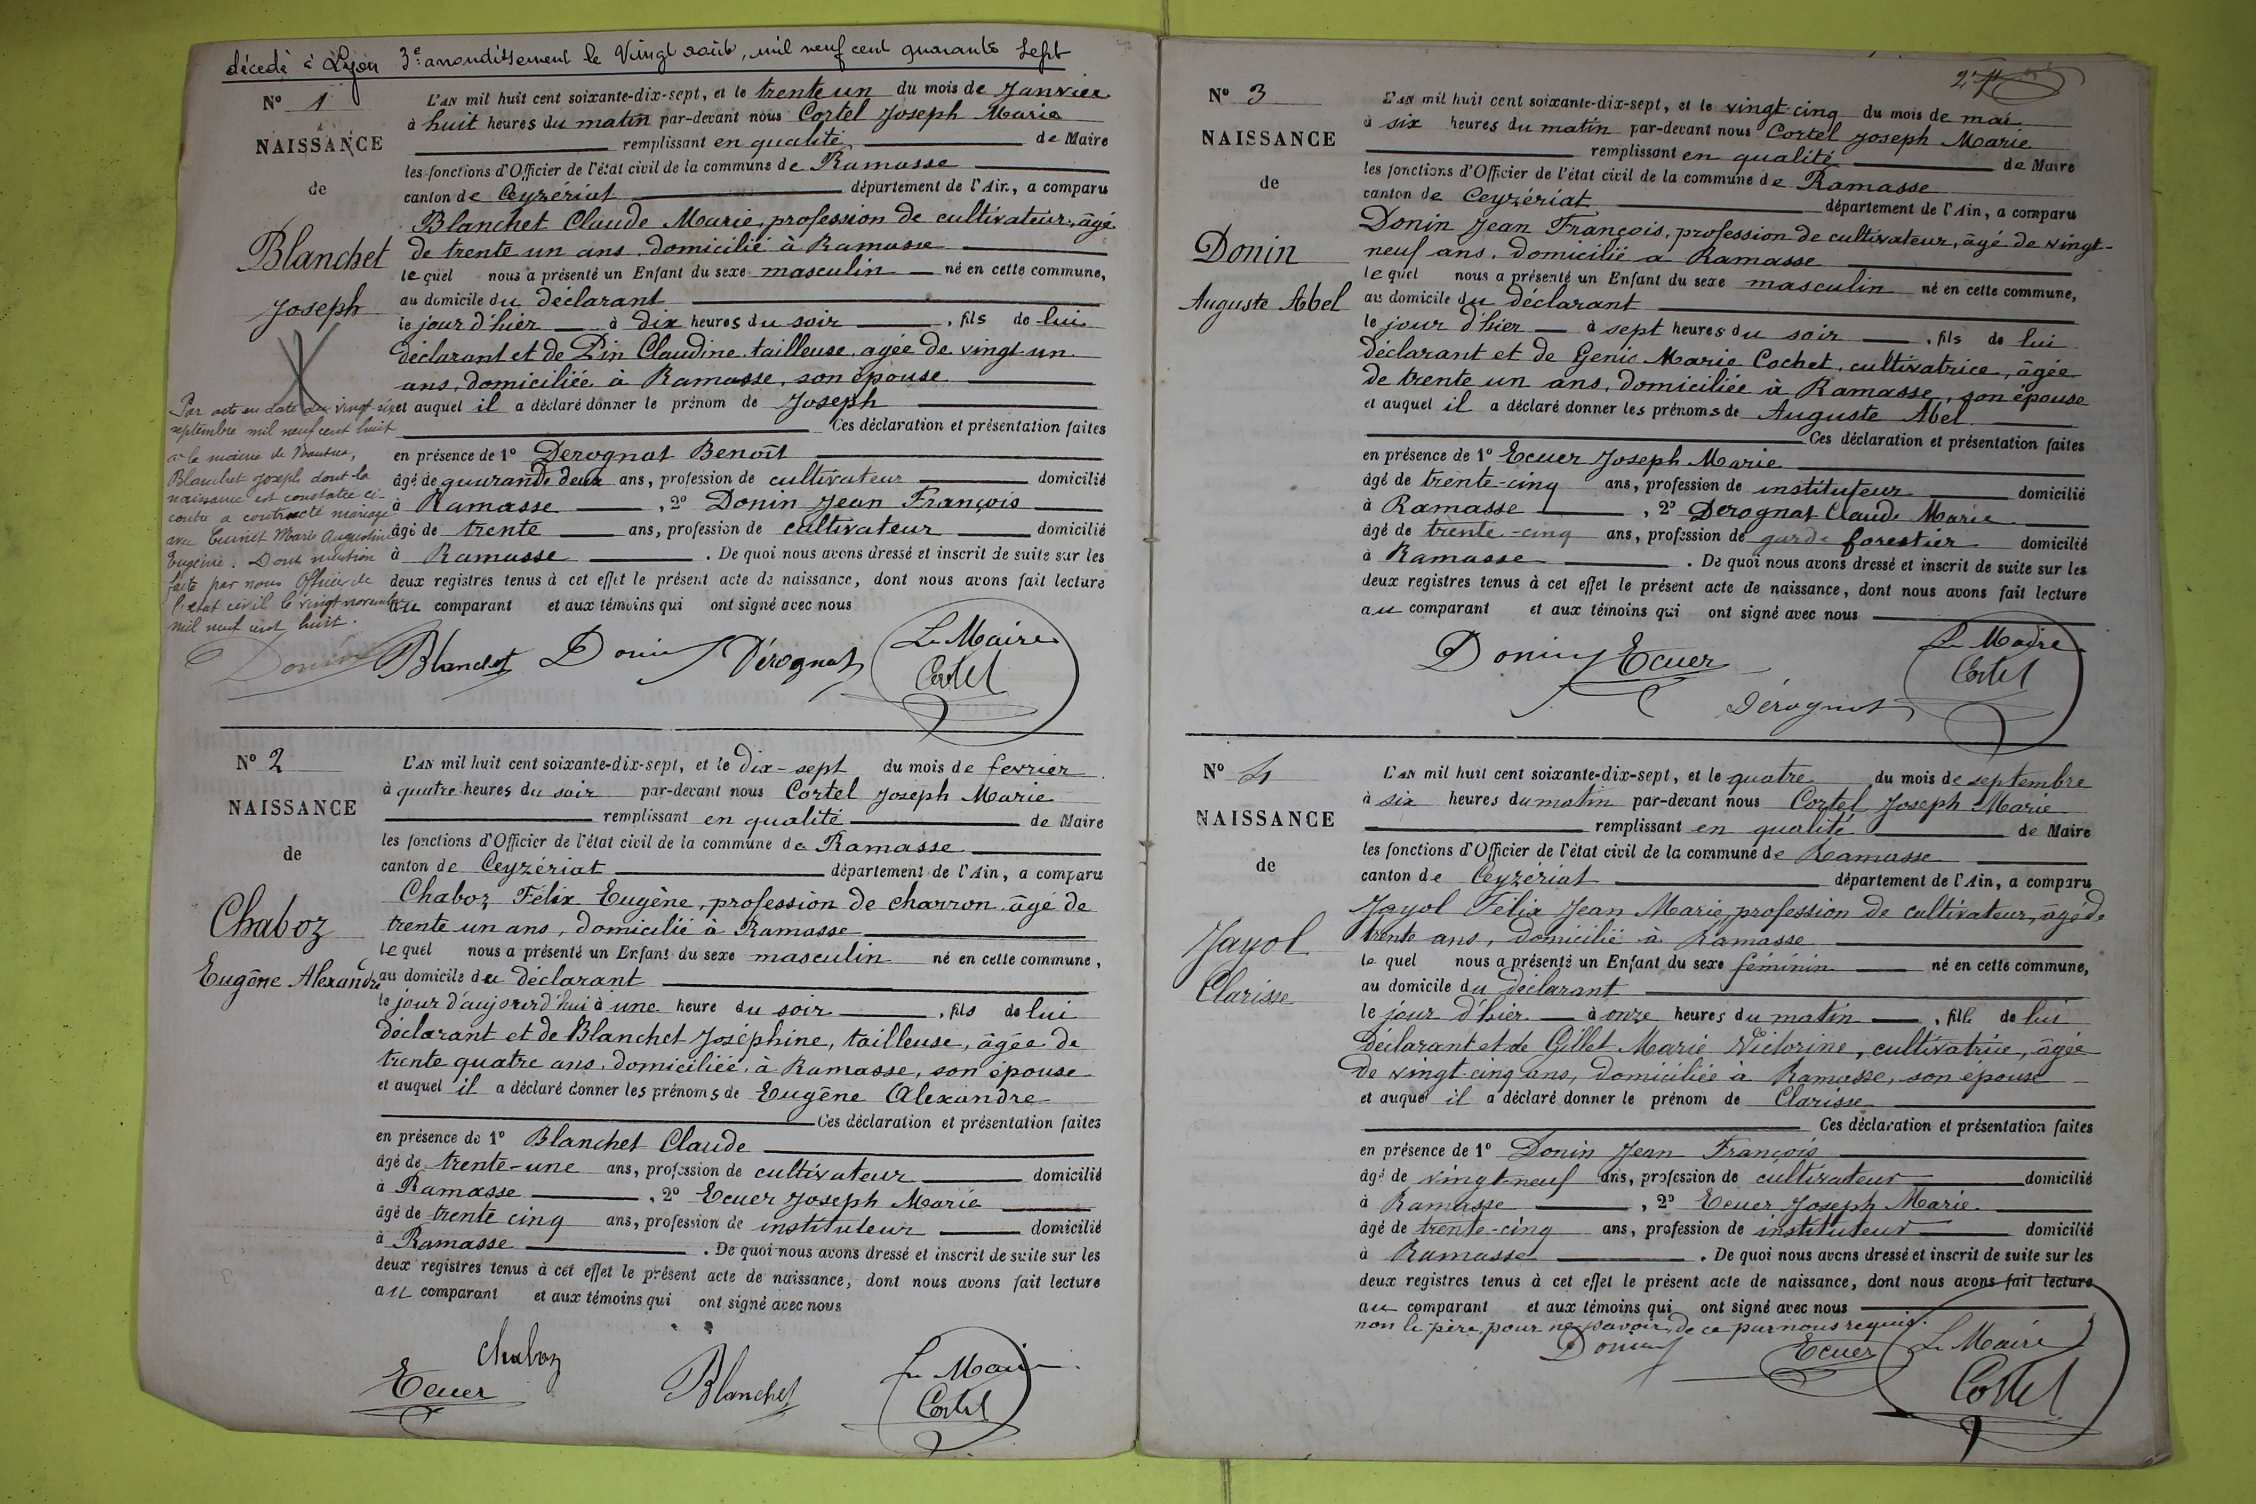 décédé à Lyon 3e arrondissement le vingt août, mil neuf cent quarante sept
N° 1
NAISSANCE
de
Blanchet
Joseph
L'AN mil huit cent soixante-dix-sept, et le trente un du mois de Janvier
à huit heures du matin par-devant nous Cortel Joseph Marie
remplissant en qualité de Maire
les fonctions d'Officier de l'état civil de la commune de Ramasse
canton de Ceyzériat département de l'Ain, a comparu
Blanchet Claude Marie, profession de cultivateur, âgé
de trente un ans, domicilié à Ramasse
lequel nous a présenté un Enfant du sexe masculin né en cette commune,
au domicile du déclarant
le jour d'hier à dix heures du soir , fils de lui
déclarant et de Pin Claudine, tailleuse, agée de vingt-un
ans, domiciliée à Ramasse, son épouse
et auquel il a déclaré donner le prénom de Joseph
Ces déclaration et présentation faites
en présence de 1° Derognat Benoît
âgé de quarante deux ans, profession de cultivateur domicilié
à Ramasse , 2° Donin Jean François
âgé de trente ans, profession de cultivateur domicilié
à Ramasse . De quoi nous avons dressé et inscrit de suite sur les
deux registres tenus à cet effet le présent acte de naissance, dont nous avons fait lecture
au comparant et aux témoins qui ont signé avec nous
Par acte en date du vingt-six
septembre mil neuf cent huit
à la mairie de
Blanchet Joseph dont la
naissance est constatée ci-
contre a contracté mariage
avec Marie Augustine
Eugénie. Dont mention
faite par nous Officier de
l'état civil le vingt novembre
mil neuf cent huit.
Donin Blanchet Donin Dérognat Le Maire
Cortel
N° 2
NAISSANCE
de
Chaboz
Eugène Alexandre
L'AN mil huit cent soixante-dix-sept, et le dix-sept du mois de fevrier
à quatre heures du soir par-devant nous Cortel Joseph Marie
remplissant en qualité de Maire
les fonctions d'Officier de l'état civil de la commune de Ramasse
canton de Ceyzériat département de l'Ain, a comparu
Chaboz Félix Eugène, profession de charron âgé de
trente un ans, domicilié à Ramasse
lequel nous a présenté un Enfant du sexe masculin né en cette commune,
au domicile du déclarant
le jour d'aujourd'hui à une heure du soir , fils de lui
déclarant et de Blanchet Joséphine, tailleuse, âgée de
trente quatre ans, domiciliée à Ramasse, son épouse
et auquel il a déclaré donner les prénoms de Eugène Alexandre
Ces déclaration et présentation faites
en présence de 1° Blanchet Claude
âgé de trente-une ans, profession de cultivateur domicilié
à Ramasse , 2° Ecuer Joseph Marie
âgé de trente cinq ans, profession de instituteur domicilié
à Ramasse . De quoi nous avons dressé et inscrit de suite sur les
deux registres tenus à cet effet le présent acte de naissance, dont nous avons fait lecture
au comparant et aux témoins qui ont signé avec nous
Chaboz
Ecuer Blanchet Le Maire
Cortel
N° 3
NAISSANCE
de
Donin
Auguste Abel
L'AN mil huit cent soixante-dix-sept, et le vingt-cinq du mois de mai
à six heures du matin par-devant nous Cortel Joseph Marie
remplissant en qualité de Maire
les fonctions d'Officier de l'état civil de la commune de Ramasse
canton de Ceyzériat département de l'Ain, a comparu
Donin Jean François, profession de cultivateur, âgé de vingt-
neuf ans, domicilié à Ramasse
lequel nous a présenté un Enfant du sexe masculin né en cette commune,
au domicile du déclarant
le jour d'hier à sept heures du soir , fils de lui
déclarant et de Genie Marie Cochet, cultivatrice, âgée
de trente un ans, domiciliée à Ramasse, son épouse
et auquel il a déclaré donner les prénoms de Auguste Abel
Ces déclaration et présentation faites
en présence de 1° Ecuer Joseph Marie
âgé de trente-cinq ans, profession de instituteur domicilié
à Ramasse , 2° Derognat Claude Marie
âgé de trente-cinq ans, profession de garde forestier domicilié
à Ramasse . De quoi nous avons dressé et inscrit de suite sur les
deux registres tenus à cet effet le présent acte de naissance, dont nous avons fait lecture
au comparant et aux témoins qui ont signé avec nous
Donin Ecuer Le Maire
Dérognat Cortel
N° 4
NAISSANCE
de
Jayol
Clarisse
L'AN mil huit cent soixante-dix-sept, et le quatre du mois de septembre
à six heures du matin par-devant nous Cortel Joseph Marie
remplissant en qualité de Maire
les fonctions d'Officier de l'état civil de la commune de Ramasse
canton de Ceyzériat département de l'Ain, a comparu
Jayol Félix Jean Marie, profession de cultivateur, âgé de
trente ans, domicilié à Ramasse
lequel nous a présenté un Enfant du sexe féminin né en cette commune,
au domicile du déclarant
le jour d'hier à onze heures du matin , fille de lui
déclarant et de Gillet Marie Victorine, cultivatrice, âgée
de vingt-cinq ans, domiciliée à Ramasse, son épouse
et auquel il a déclaré donner le prénom de Clarisse
Ces déclaration et présentation faites
en présence de 1° Donin Jean François
âgé de vingt-neuf ans, profession de cultivateur domicilié
à Ramasse , 2° Ecuer Joseph Marie
âgé de trente-cinq ans, profession de instituteur domicilié
à Ramasse . De quoi nous avons dressé et inscrit de suite sur les
deux registres tenus à cet effet le présent acte de naissance, dont nous avons fait lecture
au comparant et aux témoins qui ont signé avec nous
non le père, pour ne savoir, de ce par nous requis.
Donin Ecuer Le Maire
Cortel